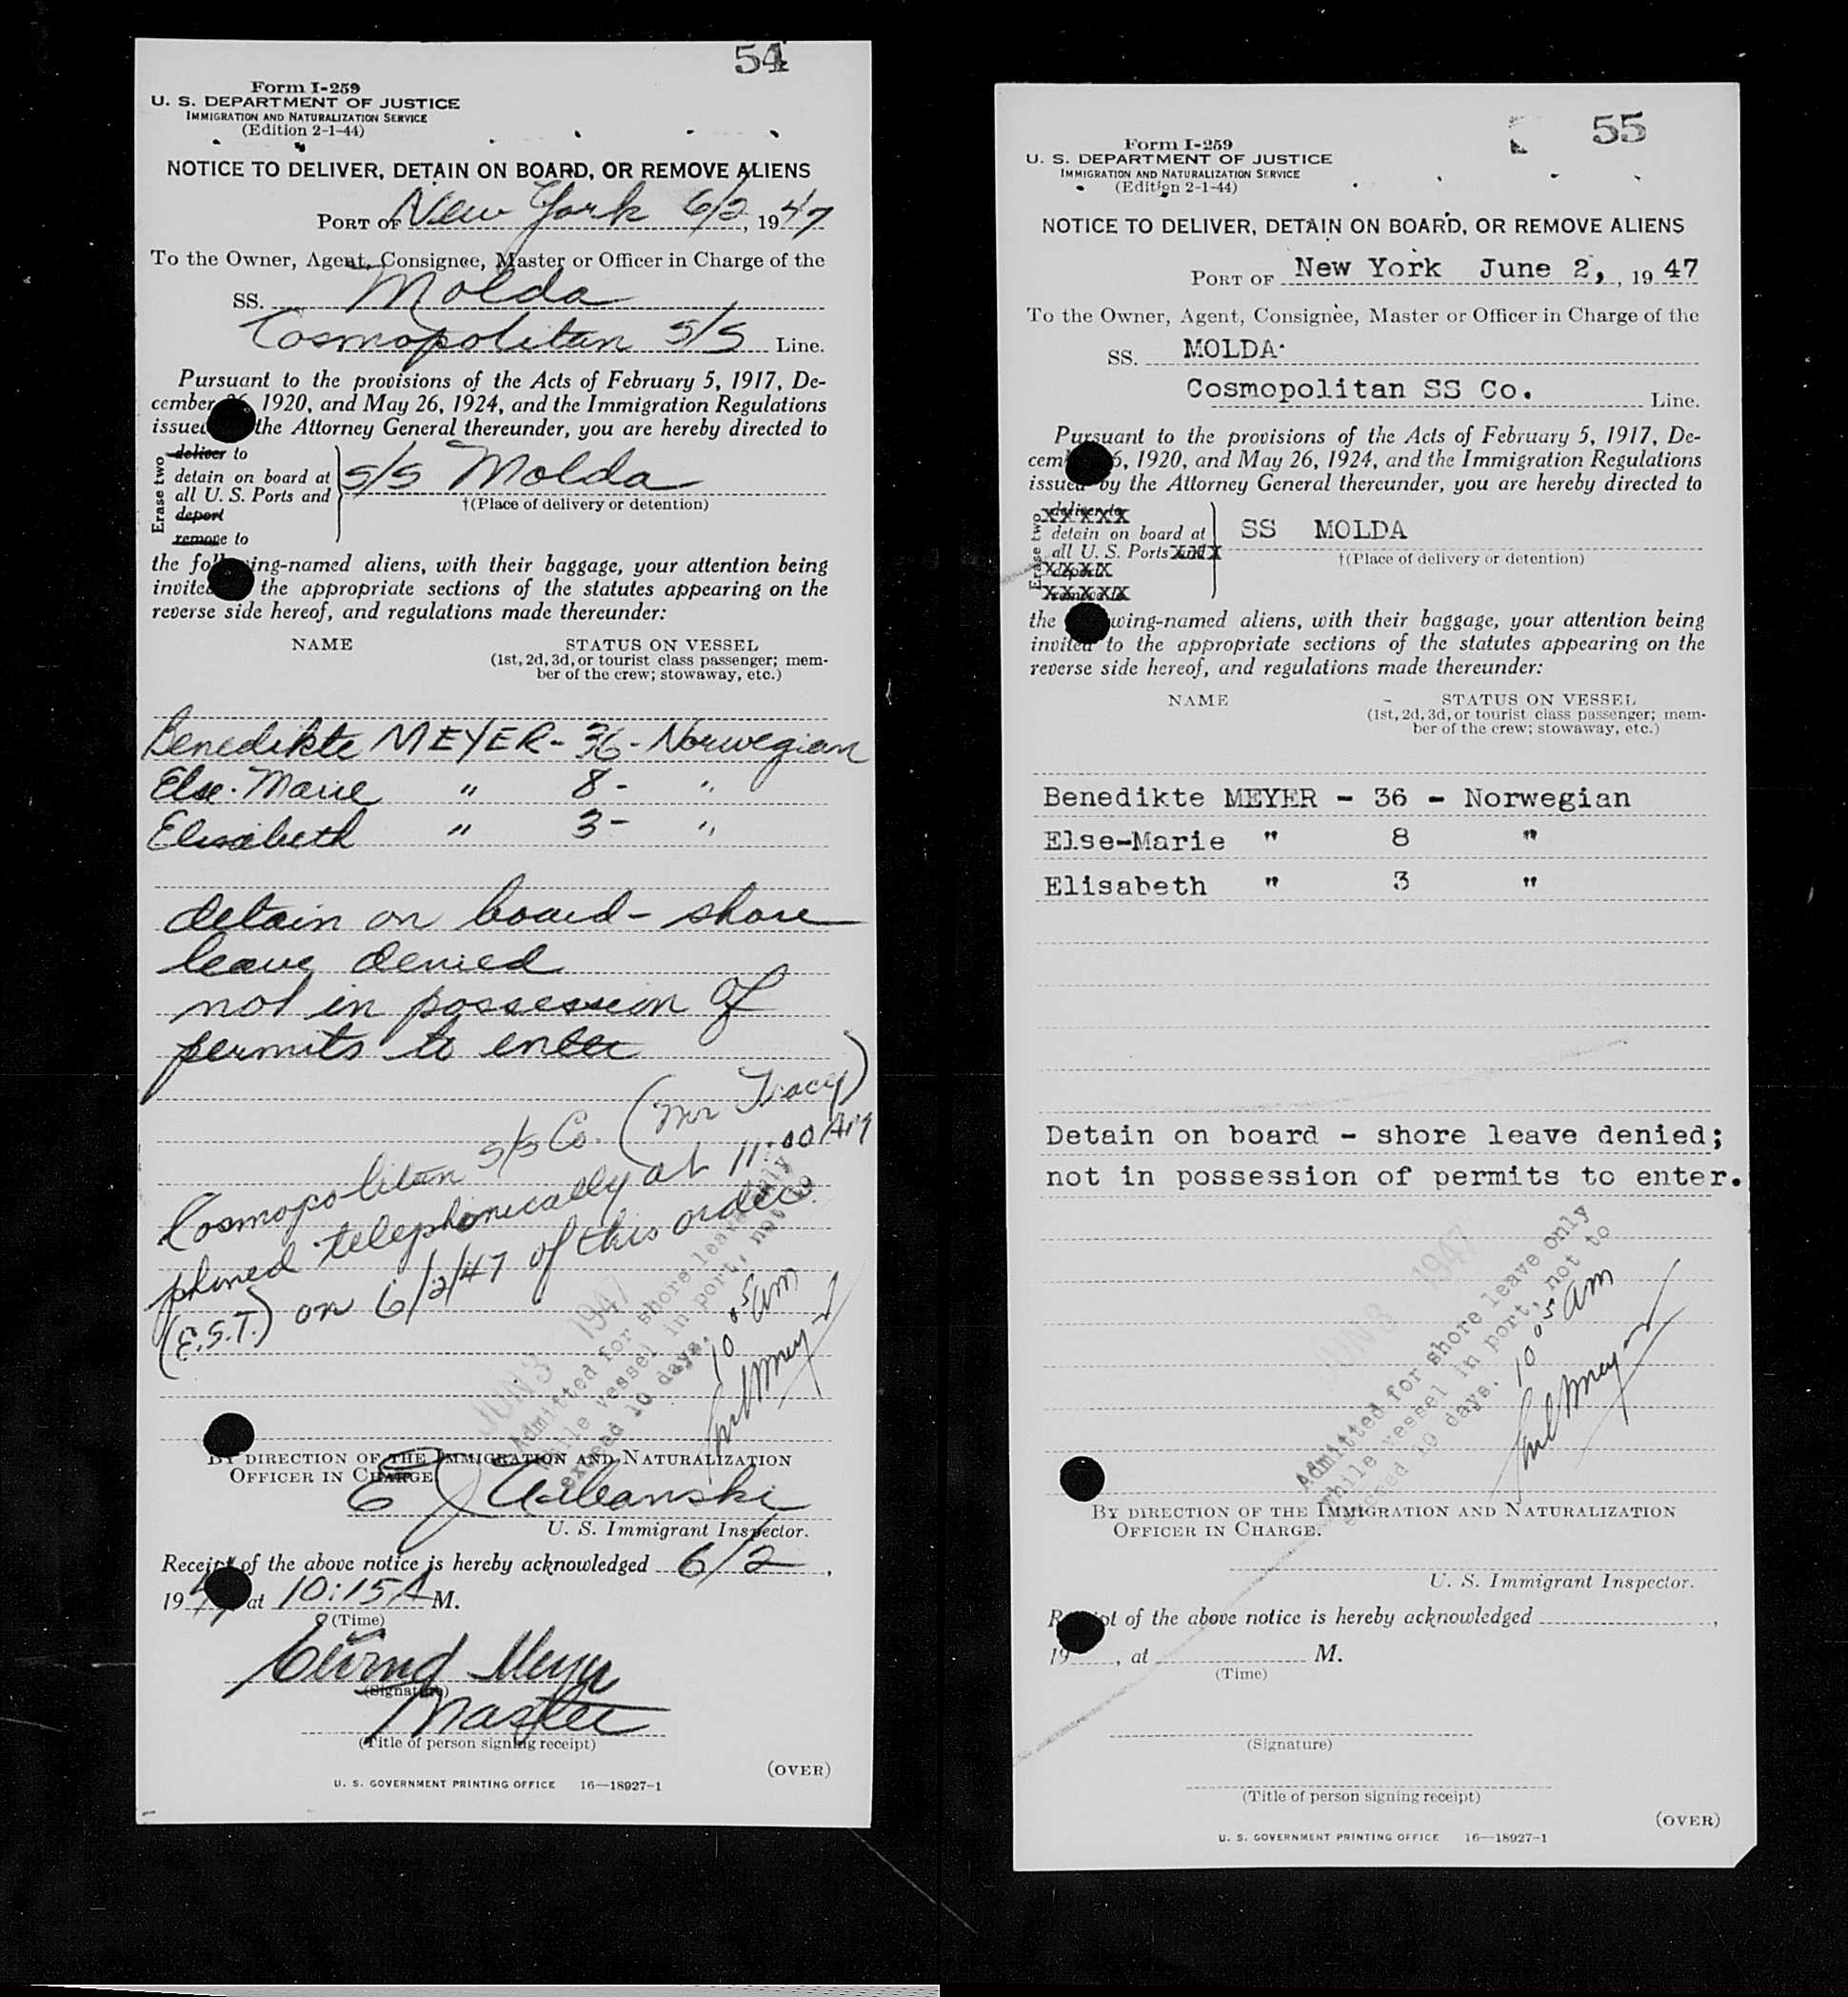 54
Form I-259
U. S. DEPARTMENT OF JUSTICE
IMMIGRATION AND NATURALIZATION SERVICE
(Edition 2-1-44)
NOTICE TO DELIVER, DETAIN ON BOARD, OR REMOVE ALIENS
PORT OF New York 6/2, 1947
To the Owner, Agent, Consignee, Master or Officer in Charge of the
SS. Molda
Cosmopolitan S/S Line.
Pursuant to the provisions of the Acts of February 5, 1917, De-
cember 1920, and May 26, 1924, and the Immigration Regulations
issued the Attorney General thereunder, you are hereby directed to
Erase two
deliver to
detain on board at
all U. S. Ports and
deport
remove to
S/S Molda
†(Place of delivery or detention)
the following-named aliens, with their baggage, your attention being
invited the appropriate sections of the statutes appearing on the
reverse side hereof, and regulations made thereunder:
NAME STATUS ON VESSEL
(1st, 2d, 3d, or tourist class passenger; mem-
ber of the crew; stowaway, etc.)
Benedikte MEYER - 36 - Norwegian
Else-Marie " 8 - "
Elisabeth " 3 - "
detain on board - shore
leave denied
not in possession of
permits to enter
Cosmopolitan S/S Co. (Mr Tracy)
phoned telephonically at 11:00 AM
(E.S.T.) on 6/2/47 of this order.
JUN 3 1947
Admitted for shore leave only
while vessel in port, not to
exceed 10 days.
10 05 am
BY DIRECTION OF THE IMMIGRATION AND NATURALIZATION
OFFICER IN CHARGE
E J Urbanski
U. S. Immigrant Inspector.
Receipt of the above notice is hereby acknowledged 6/2,
1947 at 10:15 A M.
(Time)
Meyer
(Signature)
Master
(Title of person signing receipt)
(OVER)
U. S. GOVERNMENT PRINTING OFFICE 16—18927-1
55
Form I-259
U. S. DEPARTMENT OF JUSTICE
IMMIGRATION AND NATURALIZATION SERVICE
(Edition 2-1-44)
NOTICE TO DELIVER, DETAIN ON BOARD, OR REMOVE ALIENS
PORT OF New York June 2, , 1947
To the Owner, Agent, Consignee, Master or Officer in Charge of the
SS. MOLDA
Cosmopolitan SS Co. Line.
Pursuant to the provisions of the Acts of February 5, 1917, De-
cem 6, 1920, and May 26, 1924, and the Immigration Regulations
issued by the Attorney General thereunder, you are hereby directed to
Erase two
deliver to
detain on board at
all U. S. Ports and
deport
remove to
SS MOLDA
†(Place of delivery or detention)
the following-named aliens, with their baggage, your attention being
invited to the appropriate sections of the statutes appearing on the
reverse side hereof, and regulations made thereunder:
NAME STATUS ON VESSEL
(1st, 2d, 3d, or tourist class passenger; mem-
ber of the crew; stowaway, etc.)
Benedikte MEYER - 36 - Norwegian
Else-Marie " 8 "
Elisabeth " 3 "
Detain on board - shore leave denied;
not in possession of permits to enter.
JUN 3 1947
Admitted for shore leave only
while vessel in port, not to
exceed 10 days.
10 05 am
BY DIRECTION OF THE IMMIGRATION AND NATURALIZATION
OFFICER IN CHARGE.
U. S. Immigrant Inspector.
Receipt of the above notice is hereby acknowledged ,
19 , at M.
(Time)
(Signature)
(Title of person signing receipt)
(OVER)
U. S. GOVERNMENT PRINTING OFFICE 16—18927-1